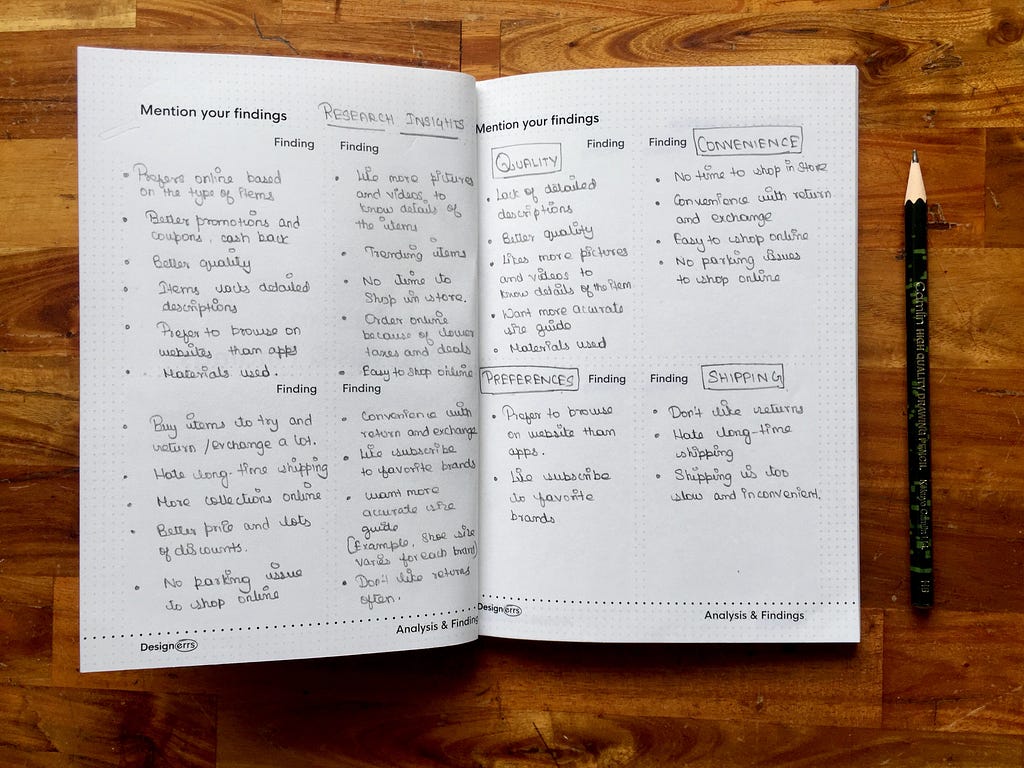 Mention your findings
RESEARCH INSIGHTS
Finding
• Prefers online based
on the type of items
• Better promotions and
coupons, cash back
• Better quality
• Items lacks detailed
descriptions
• Prefer to browse on
websites than apps
• Materials used.
Finding
• Like more pictures
and videos to
know details of
the items
• Trending items
• No time to
Shop in store.
• Order online
because of lower
taxes and deals
• Easy to shop online
Finding
• Buy items to try and
return /exchange a lot.
• Hate long-time shipping
• More collections online
• Better price and lots
of discounts.
• No parking issue
to shop online
Finding
• Convenience with
return and exchange
• Like subscribe
to favorite brands
• want more
accurate size
guide
(Example, Shoe size
varies for each brand)
• Don't like returns
often.
Designerrs
Analysis & Finding
Mention your findings
QUALITY
Finding
• Lack of detailed
descriptions
• Better quality
• Likes more pictures
and videos to
know details of the item
• Want more accurate
size guide
• Materials used
Finding
CONVENIENCE
• No time to shop in store
• Convenience with return
and exchange
• Easy to shop online
• No parking issues
to shop online
PREFERENCES
Finding
• Prefer to browse
on website than
apps.
• Like subscribe
to favorite
brands
Finding
SHIPPING
• Don't like returns
• Hate long-time
shipping
• Shipping is too
slow and inconvenient.
Designerrs
Analysis & Findings
HIGH QUALITY DRAWING PENCIL
HB